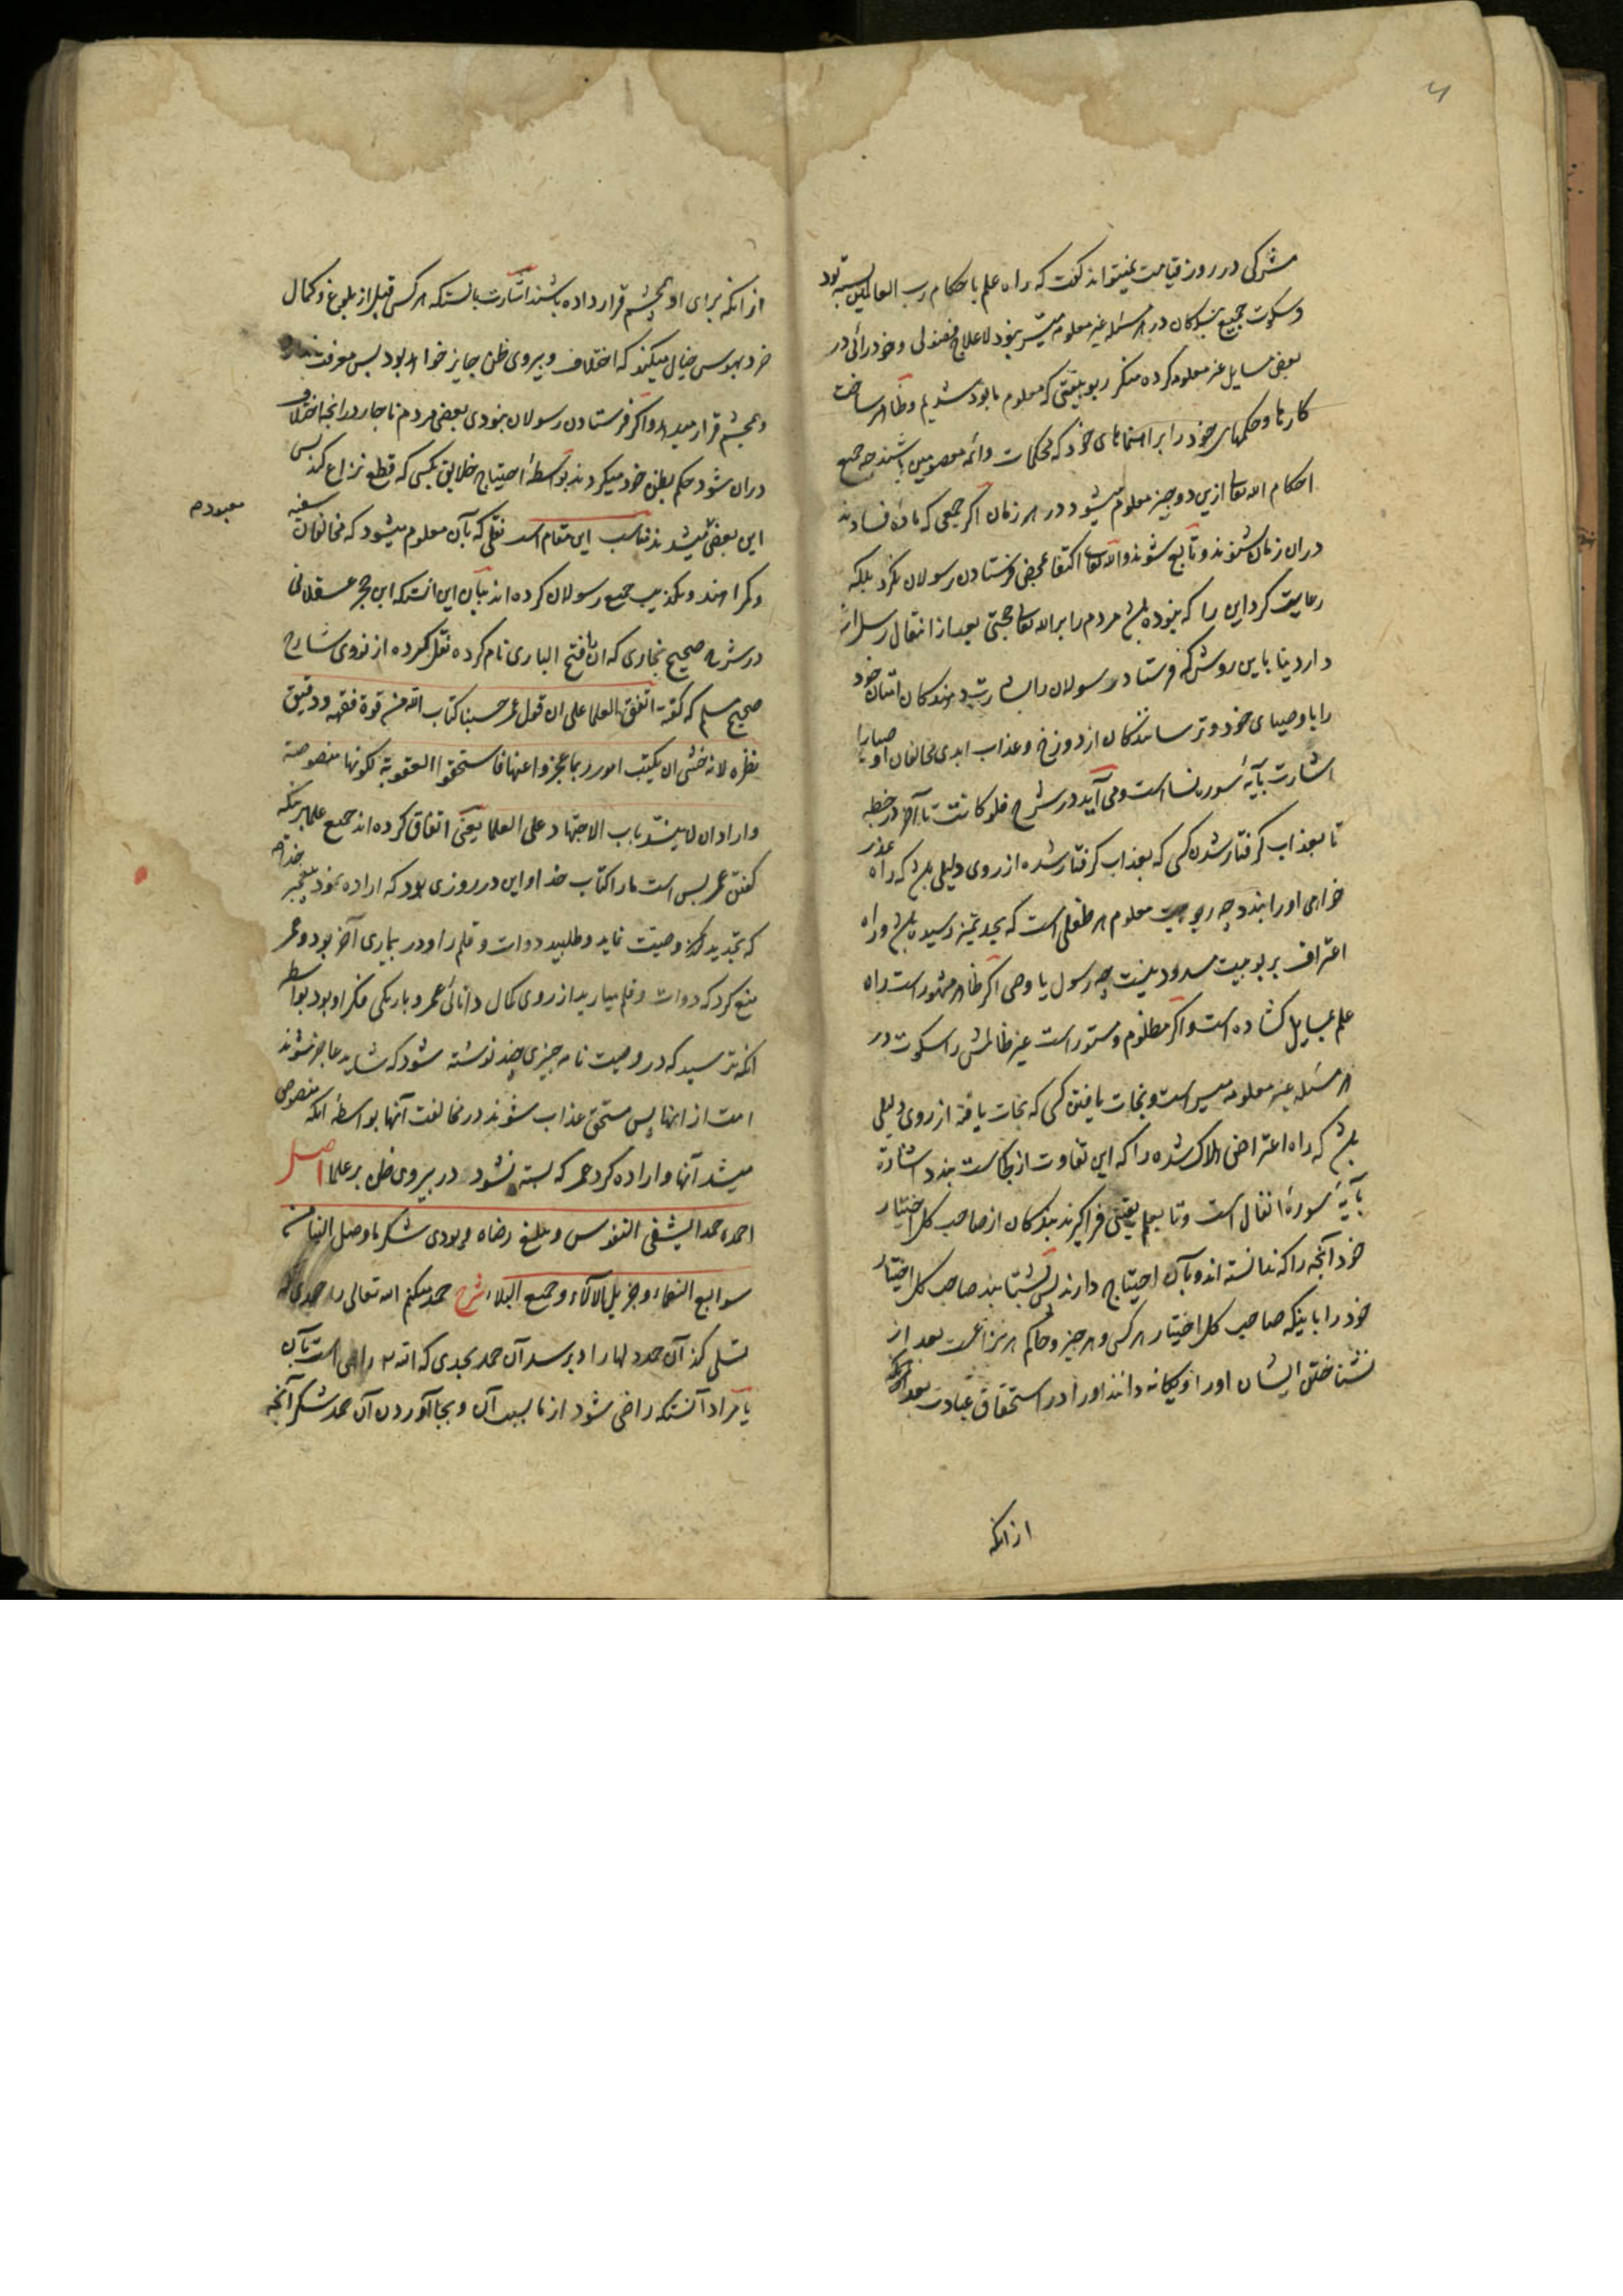 مشرکی در روز قیامت نمیتواند گفت که راه علم باحکام رب العالمین بسته بود
و سکوت جمیع بندکان در هر مسئله غیر معلومه میسر نبود لاعلاج فضولی و خودرائی در
بعض مسایل غیر معلومه کرده منکر ربوبیتی که معلوم ما بود شدیم و ظاهر ساخت
کارها و حکمهای خود را براهنماهای خود که محکمات و ائمه معصومین باشند چه جمیع
احکام الله تعالی ازین دو چیز معلوم میشود در هر زمان اگر جمعی که ماده فسادند
دران زمان شنوند و تابع شوند و الله تعالی اکتفا بمحض فرستادن رسولان نکرد بلکه
رعایت کرد این را که نبوده باشد مردم را بر الله تعالی حجتی بعد از انتقال رسل از
دار دنیا باین روش که فرستاد رسولان را بشارت دهندکان امتان خود
را باوصیای خود و ترسانندکان از دوزخ و عذاب ابدی مخالفان اوصیا را
اشارت بآیه سوره نسا است و می آید در شرح فلو کانت تا آخر در خطبه
تا بعذاب کرفتار شدن کسی که بعذاب کرفتار شده از روی دلیلی باشد که راه عذر
خواهی او را بندد چه ربوبیت معلوم هر طفلی است که بحد تمیز رسیده باشد و راه
اعتراف بربوبیت مسدود نیست چه رسول یا وصی اگر ظاهر مشهور است راه
علم بمسایل کشاده است و اگر مظلوم و مستور است غیر ظالمش را سکوت در
هر مسئله غیر معلومه میسر است و نجات یافتن کسی که نجات یافته از روی دلیلی
باشد که راه اعتراض هلاک شده را که این تفاوت از کجاست بندد اشارة
بآیه سورهٔ انفال است و تا بعلم یعنی فرا کیرند بندکان از صاحب کل اختیار
خود آنچه را که ندانسته اند و بآن احتیاج دارند پس بشناسند صاحب کل اختیار
خود را باینکه صاحب کل اختیار هر کس و هر چیز و حاکم هر نزاعست بعد از
نشناختن ایشان او را و یکانه دانند او را در استحقاق عبادت بعد
ازانکه
ازانکه برای او چشم قرار داده باشند اشارت بانست که هر کس قبل از بلوغ و کمال
خرد بهوس خیال میکند که اختلاف و پیروی ظن جایز خواهد بود پس معرفت
و چشم قرار میدهد و اگر فرستادن رسولان نبودی بعض مردم ناچار در انچه اختلاف
دران شود حکم بظن خود میکردند بواسطهٔ احتیاج خلایق بکسی که قطع نزاع کند پس
این بعض میشدند مناسب این مقام است نقلی که بآن معلوم میشود که مخالفان سفیه
معبودم
و کمراهند و تکذیب جمیع رسولان کرده اند بیان این آنست که ابن حجر عسقلانی
در شرح صحیح بخاری که آن را فتح الباری نام کرده نقل کرده از نووی شارح
صحیح مسلم که گفته اتفق العلما علی ان قول عمر حسبنا کتاب الله من قوة فقهه و دقیق
نظره لانه خشی ان یکتب امور ربما عجزوا عنها فاستحقوا العقوبة لکونها منصوصة
و اراد ان لا ینسد باب الاجتهاد علی العلما یعنی اتفاق کرده اند جمیع علما براینکه
کفتن عمر بس است ما را کتاب خدا و این در روزی بود که اراده نمود پیغمبر خدا ص
که تجدید وصیت نماید و طلبید دوات و قلم را و در بیماری آخر بود و عمر
منع کرد که دوات و قلم میارید از روی کمال دانائی عمر و باریکی فکر او بود بواسطه
انکه ترسید که در وصیت نامه چیزی چند نوشته شود که شاید عاجز شوند
امت از انها پس مستحق عذاب شوند در مخالفت آنها بواسطهٔ انکه منصوص
میشد آنها و اراده کرد عمر که بسته نشود در پیروی ظن بر علما اصل
احمده حمدا یشفی النفوس و یبلغ رضاه و یؤدی شکر ما وصل الینا من
سوابغ النعماء و جزیل الآلاء و جمیع البلاء شرح حمد میکنم الله تعالی را حمدی که
تسلی کند آن حمد دلها را و برسد آن حمد بحدی که الله تعالی راضی است بآن
یا مراد آنست که راضی شود از ما بسبب آن و بجا آوردن آن حمد شکر آنچه